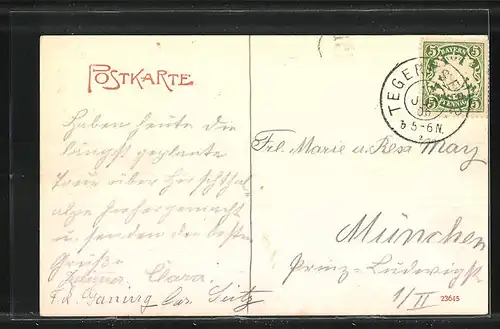 POSTKARTE
Haben heute die
längst geplante
Tour über
hierher gemacht
u. senden die besten
Grüße
Clara.
Seitz
5 BAYERN 5
PFENNIG
TEGER
5-6 N.
Frl. Marie u. Resa May
München
Prinz-Ludwigstr
1/II
23645